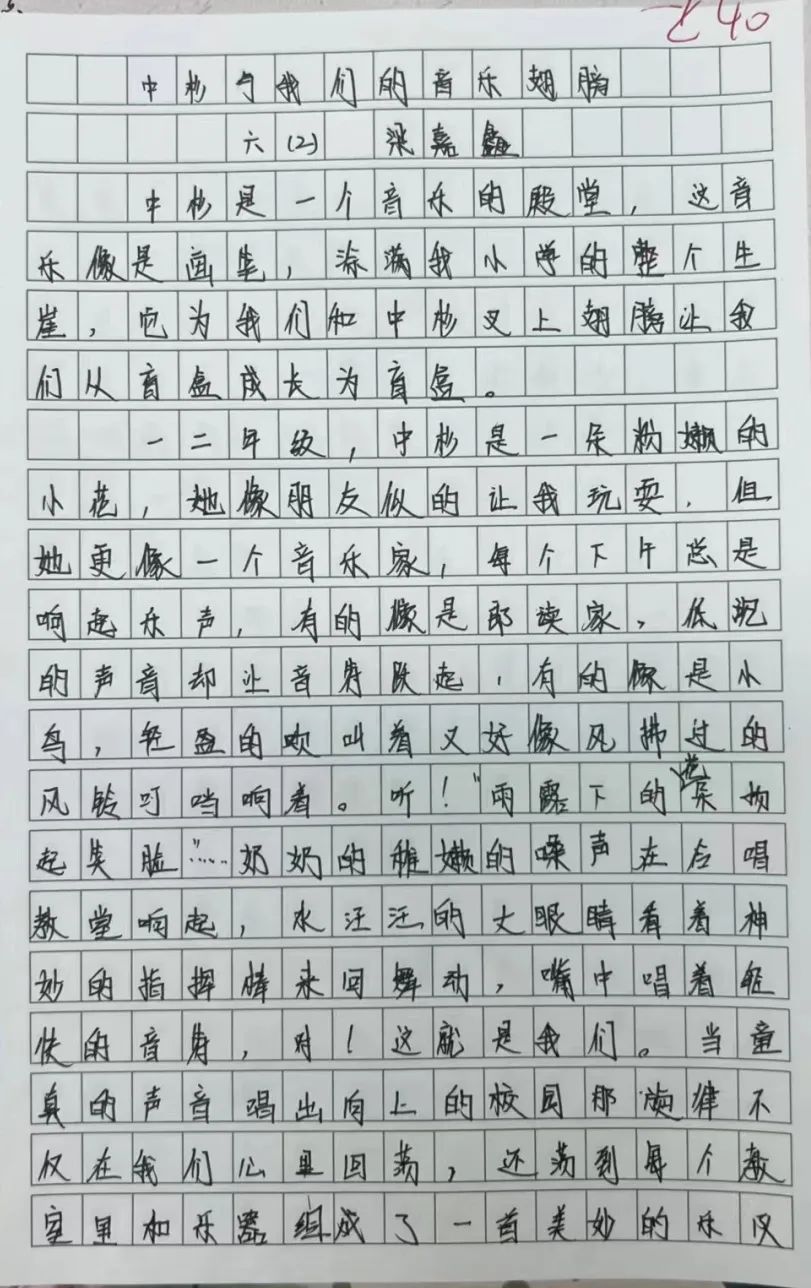 乙40
中杉与我们的音乐翅膀
六(2) 梁嘉
中杉是一个音乐的殿堂，这音
乐像是画笔，涂满我小学的整个生
崖，它为我们和中杉叉上翅膀让我
们从盲盒成长为盲盒。
一二年级，中杉是一朵粉嫩的
小花，她像朋友似的让我玩耍，但
她更像一个音乐家，每个下午总是
响起乐声，有的像是郎读家，低沉
的声音却让音身跃起，有的像是小
鸟，轻盈的吹叫着又好像风拂过的
风铃叮当响着。听！"雨露下的花朵扬
起笑脸"……奶奶的稚嫩的嗓声在合唱
教堂响起，水汪汪的大眼睛看着神
妙的指挥棒来回舞动，嘴中唱着轻
快的音身，对！这就是我们。当童
真的声音唱出向上的校园那旋律不
仅在我们心里回荡，还荡到每个教
室里和乐器组成了一首美妙的乐仅